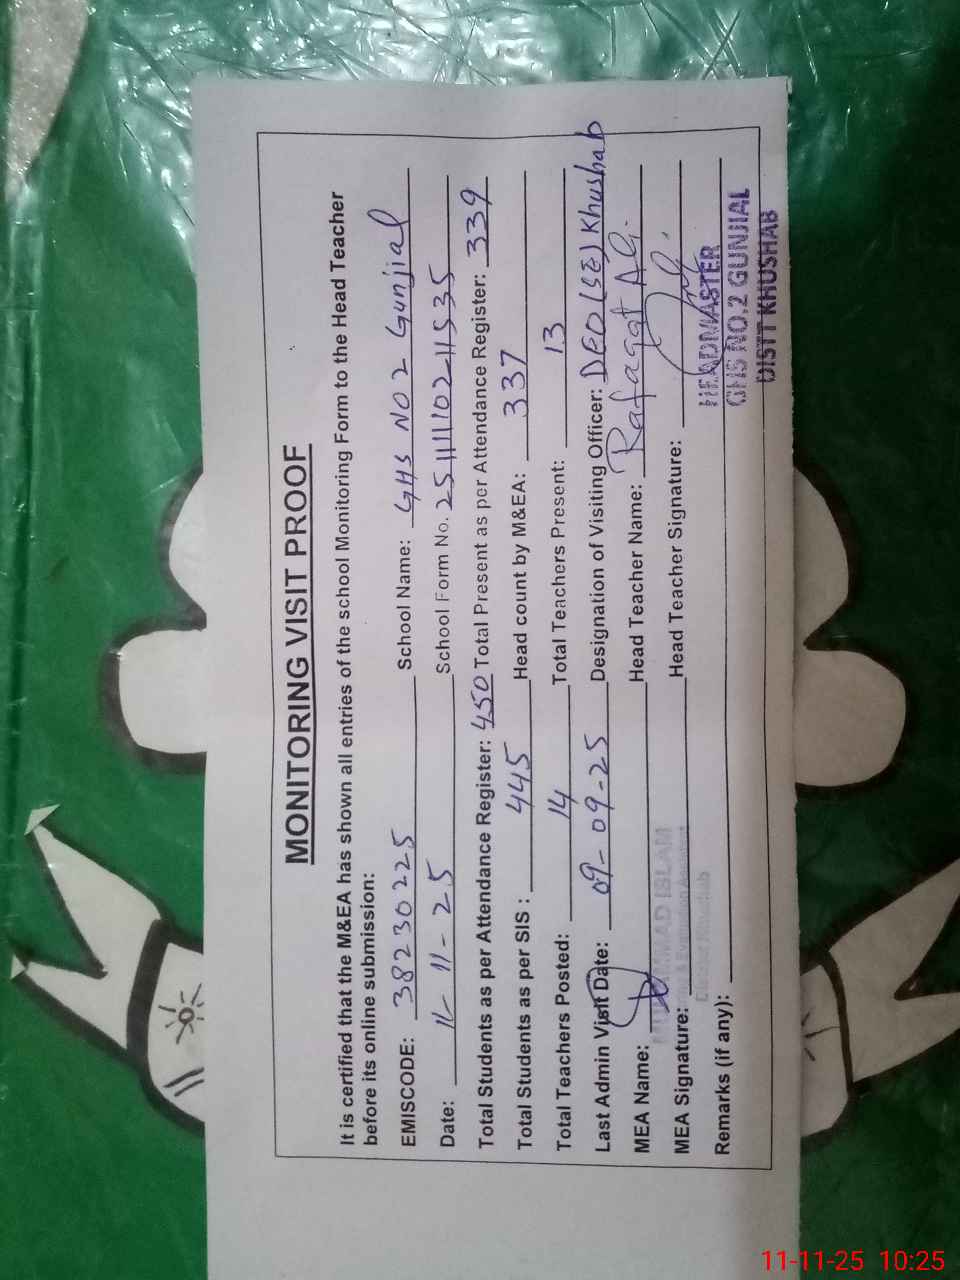 MONITORING VISIT PROOF
It is certified that the M&EA has shown all entries of the school Monitoring Form to the Head Teacher
before its online submission:
EMISCODE: 38230225 School Name: GHS NO2 Gunjial
Date: 11-11-25 School Form No. 251111102211535
Total Students as per Attendance Register: 450 Total Present as per Attendance Register: 339
Total Students as per SIS : 445 Head count by M&EA: 337
Total Teachers Posted: 14 Total Teachers Present: 13
Last Admin Visit Date: 09-09-25 Designation of Visiting Officer: DEO (SE) Khushab
MEA Name: Head Teacher Name: Rafaqat Ali
MUHAMMAD ISLAM
MEA Signature: Head Teacher Signature:
Monitoring & Evaluation Assistant
District Khushab
Remarks (if any):
HEADMASTER
GHS NO.2 GUNJIAL
DISTT KHUSHAB
11-11-25 10:25